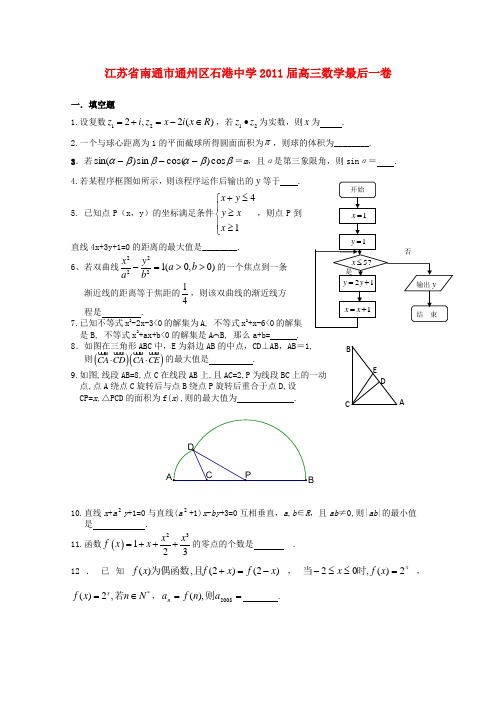 江苏省南通市通州区石港中学2011届高三数学最后一卷
一．填空题
1.设复数z₁=2+i,z₂=x-2i(x∈R)，若z₁•z₂为实数，则x为 .
2.一个与球心距离为1的平面截球所得圆面面积为π，则球的体积为________.
3．若sin(α-β)sinβ-cos(α-β)cosβ=m，且α是第三象限角，则sinα= .
4.若某程序框图如所示，则该程序运作后输出的y等于 .
5. 已知点P（x，y）的坐标满足条件{x+y≤4 y≥x x≥1，则点P到
直线4x+3y+1=0的距离的最大值是________.
6、若双曲线x²/a²-y²/b²=1(a>0,b>0)的一个焦点到一条
渐近线的距离等于焦距的1/4，则该双曲线的渐近线方
程是 .
7.已知不等式x²-2x-3<0的解集为A, 不等式x²+x-6<0的解集
是B, 不等式x²+ax+b<0的解集是A⌒B, 那么a+b= .
8．如图在三角形ABC中，E为斜边AB的中点，CD⊥AB，AB＝1，
则(CA·CD)(CA·CE)的最大值是 .
9.如图,线段AB=8,点C在线段AB上,且AC=2,P为线段BC上的一动
点,点A绕点C旋转后与点B绕点P旋转后重合于点D,设
CP=x,△PCD的面积为f(x),则的最大值为 .
开始
x=1
y=1
x≤57
否
是
y=2y+1
x=x+1
输出y
结 束
B
E
D
C
A
D
A
C
P
B
10.直线x+a²y+1=0与直线(a²+1)x-by+3=0互相垂直，a,b∈R，且ab≠0,则|ab|的最小值
是 .
11.函数f(x)=1+x+x²/2+x³/3的零点的个数是 .
12．已知f(x)为偶函数,且f(2+x)=f(2-x)，当-2≤x≤0时,f(x)=2ˣ，
f(x)=2ˣ,若n∈N*，aₙ=f(n),则a₂₀₀₈=______.